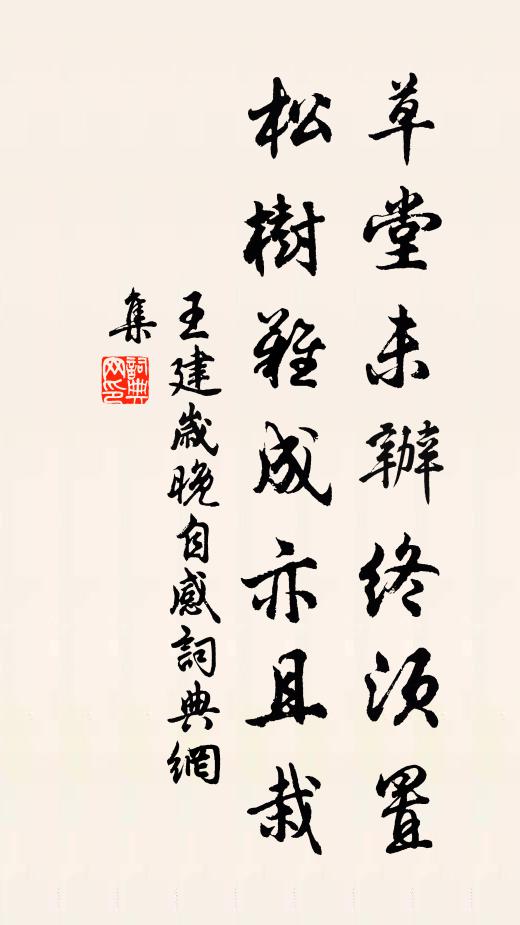 草堂未辦終須置
松樹難成亦且栽
王建歲晚自感詞典網
集
詞典网印